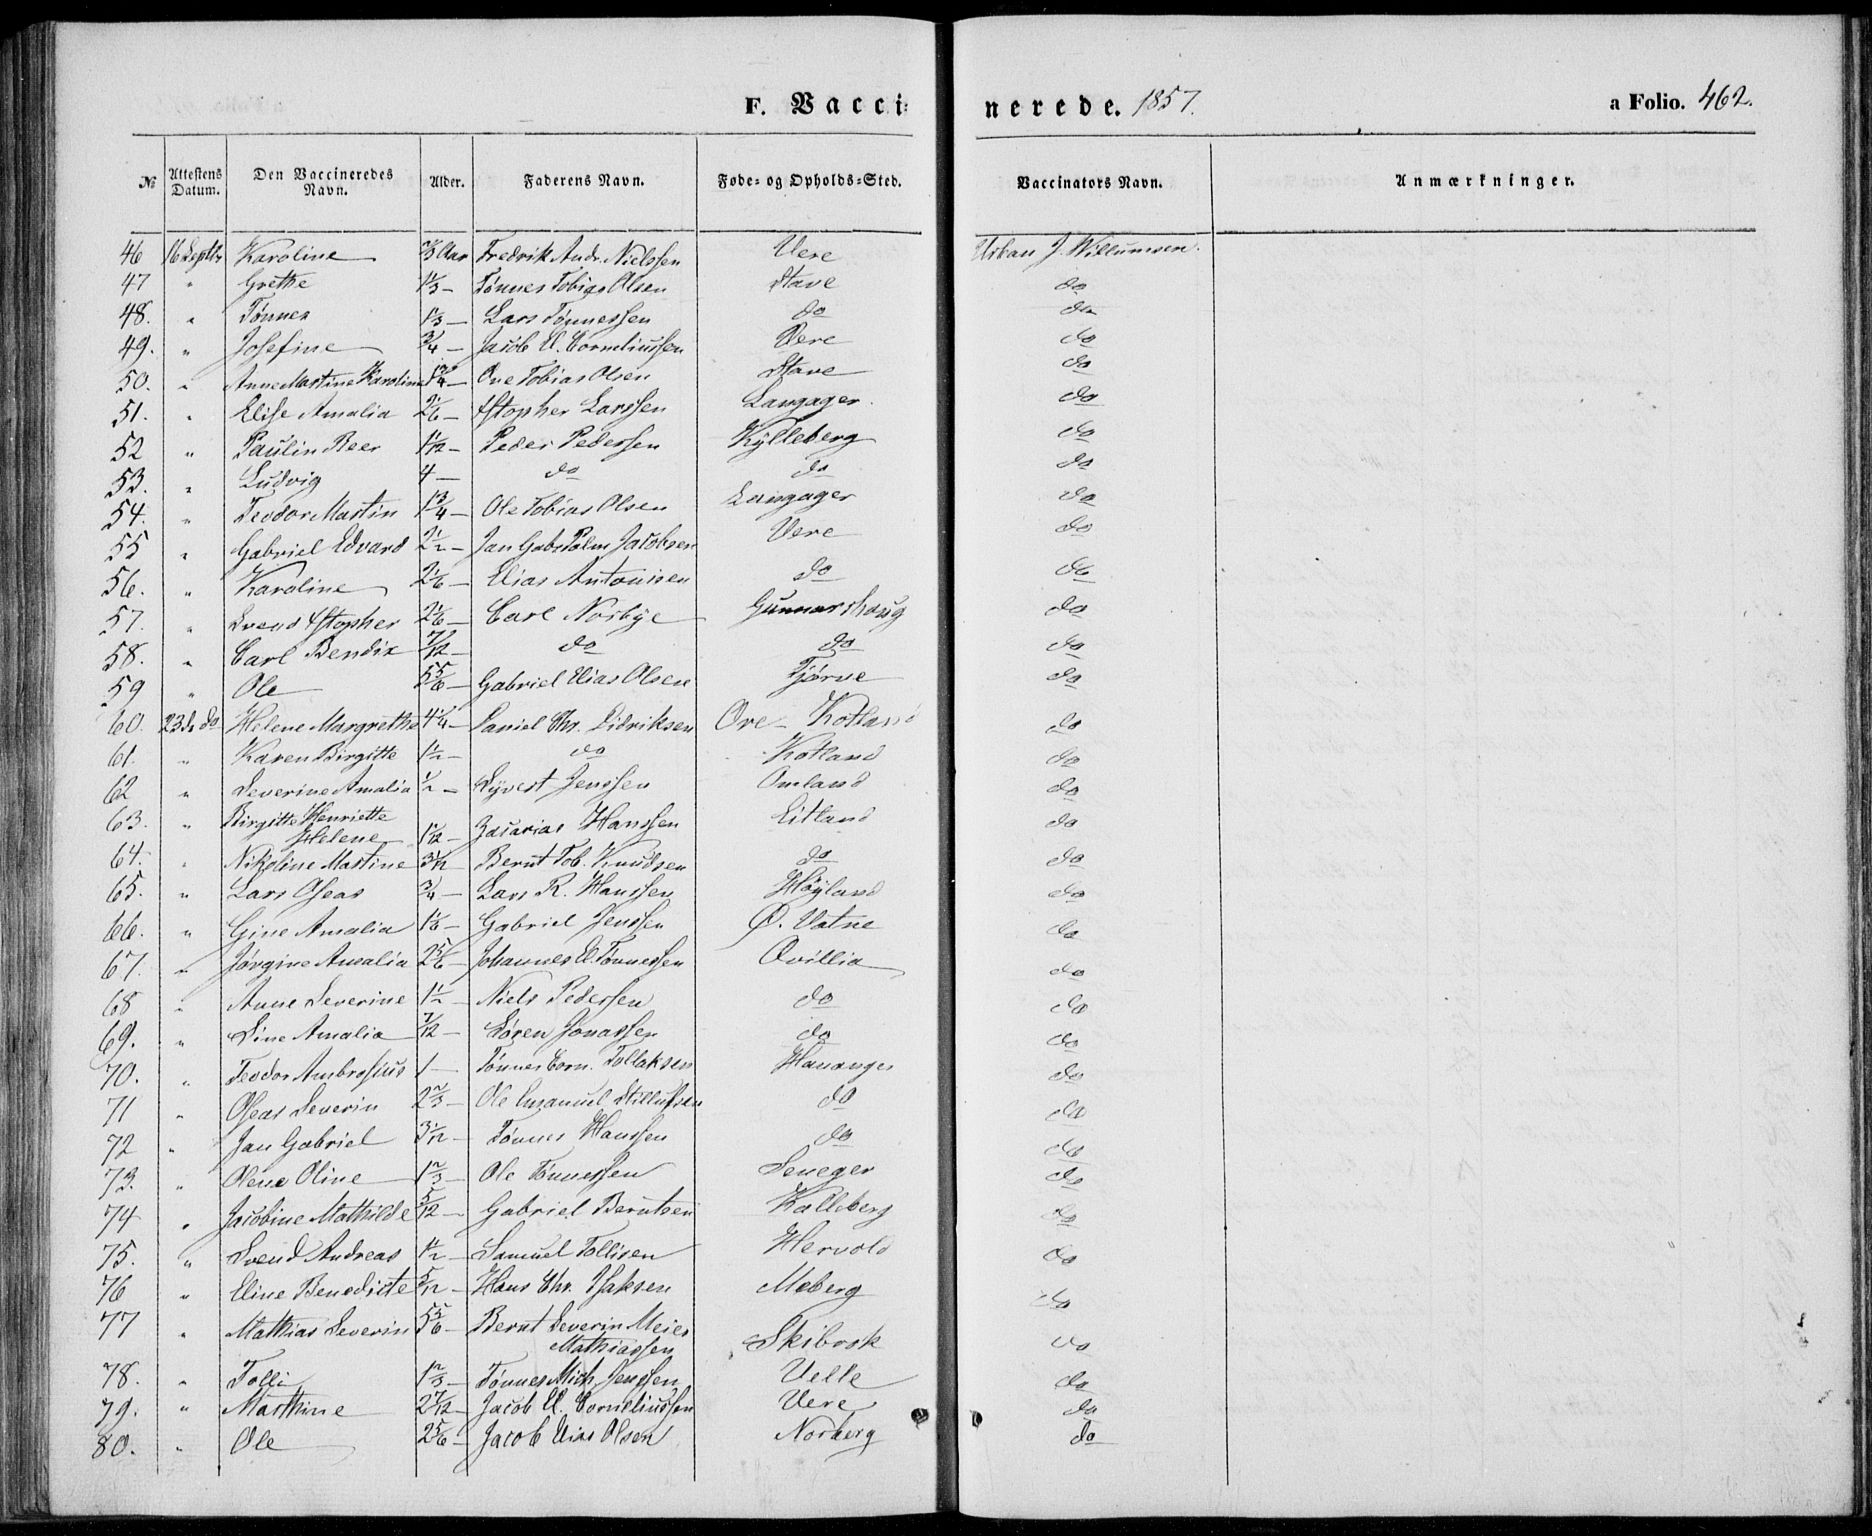 F. Vacci-nerede. 1857. a Folio. 462.
№ Attestens Datum. Den Vaccineredes Navn. Alder. Faderens Navn. Føde- og Opholds-Sted. Vaccinators Navn. Anmærkninger.
46 16 Septbr Karoline 2/3 Aar Fredrik Andr. Nielssen Vere Urban J. Willumsen.
47 " Grethe 1 1/3 — Tønnes Tobias Olsen Stave do
48. " Tønnes 1 1/3 — Lars Tønnessen do do
49. " Josefine 3/4 — Jacob E. Corneliussen Vere do
50. " Anne Martine Karoline 1 3/4 — Ove Tobias Olsen Stave do
51. " Elise Amalia 2 1/6 — Xstopher Larssen Langager. do
52 " Paulin Beer 1 1/12 — Peder Pedersen Kylleberg do
53. " Ludvig 4 — do do do
54. " Teodor Martin 1 3/4 — Ole Tobias Olsen Langager do
55 " Gabriel Edvard 2 1/2 — Jan Gabr. Palm Jacobsen Vere do
56. " Karoline 2 1/6 — Elias Antonisen do do
57. " Svend Xstopher 2 1/6 — Carl Norbye Gunnarshaug do
58. " Carl Bendix 7/12 — do do do
59 " Ole 5 5/6 — Gabriel Elias Olsen Tjørve do
60. 23de do Helene Margrethe 4 1/4 — Daniel Chr. Didriksen Ore - Kotland do
61. " Karen Birgitte 1 1/2 — do Kotland do
62 " Severine Amalia 1/2 — Syvert Jenssen Omland do
63. " Birgitte Henriette
Helene 1 1/12 — Zacarias Hanssen Eitland do
64. " Nikoline Martine 3 1/12 — Bernt Tob. Knudsen do do
65. " Lars Oseas 3/4 — Lars R. Hanssen Høyland do
66. " Gine Amalia 1 1/6 — Gabriel Jenssen Ø. Vatne do
67. " Jørgine Amalia 2 5/6 — Johannes E. Tønnessen Qvillia do
68 " Anne Severine 1 1/2 — Niels Pedersen do do
69. " Sine Amalia 7/12 — Søren Jonassen do do
70. " Teodor Ambrosius 1 — Tønnes Corn. Tollaksen Hananger do
71 " Oseas Severin 2 2/3 — Ole Emanuel do do
72 " Jan Gabriel 3 1/12 — Tønnes Hanssen do do
73. " Olene Oline 1 2/3 — Ole Tønnessen Seneger do
74 " Jacobine Mathilde 5/12 — Gabriel Berntsen Kalleberg do
75. " Svend Andreas 1 1/2 — Samuel Tollisen Hervold do
76 " Eline Benedicte 5/12 — Hans Chr. Isaksen Meberg do
77 " Mathias Severin 5 5/6 — Bernt Severin Meier
Mathiassen Skibvok do
78. " Tolli 1 2/3 — Tønnes Mich. Jenssen Uelle do
79. " Marthine 2 7/12 — Jacob E. Corneliussen Vere do
80. " Ole 2 5/6 — Jacob Elias Olsen Norberg do